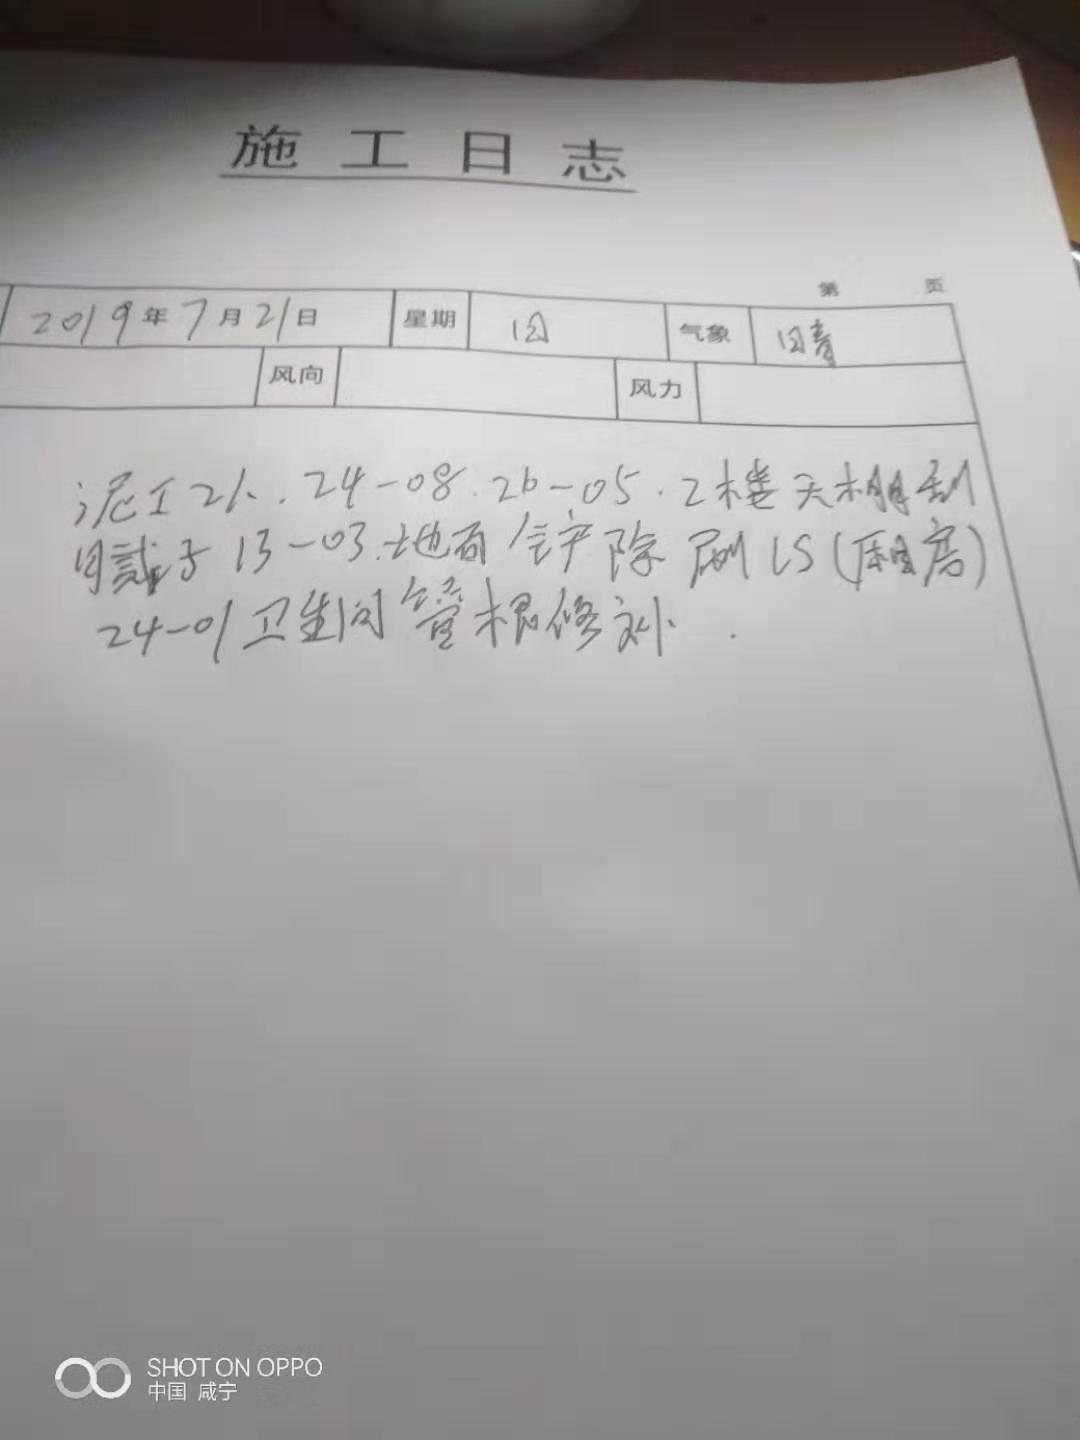 施工日志
第 页
2019年7月21日 星期 日 气象 日晴
风向 风力
泥工2人.24-08.26-05.2楼天棚刮
13-03.地面铲除刷LS(厨房)
24-01卫生间管根修补.
SHOT ON OPPO
中国 咸宁